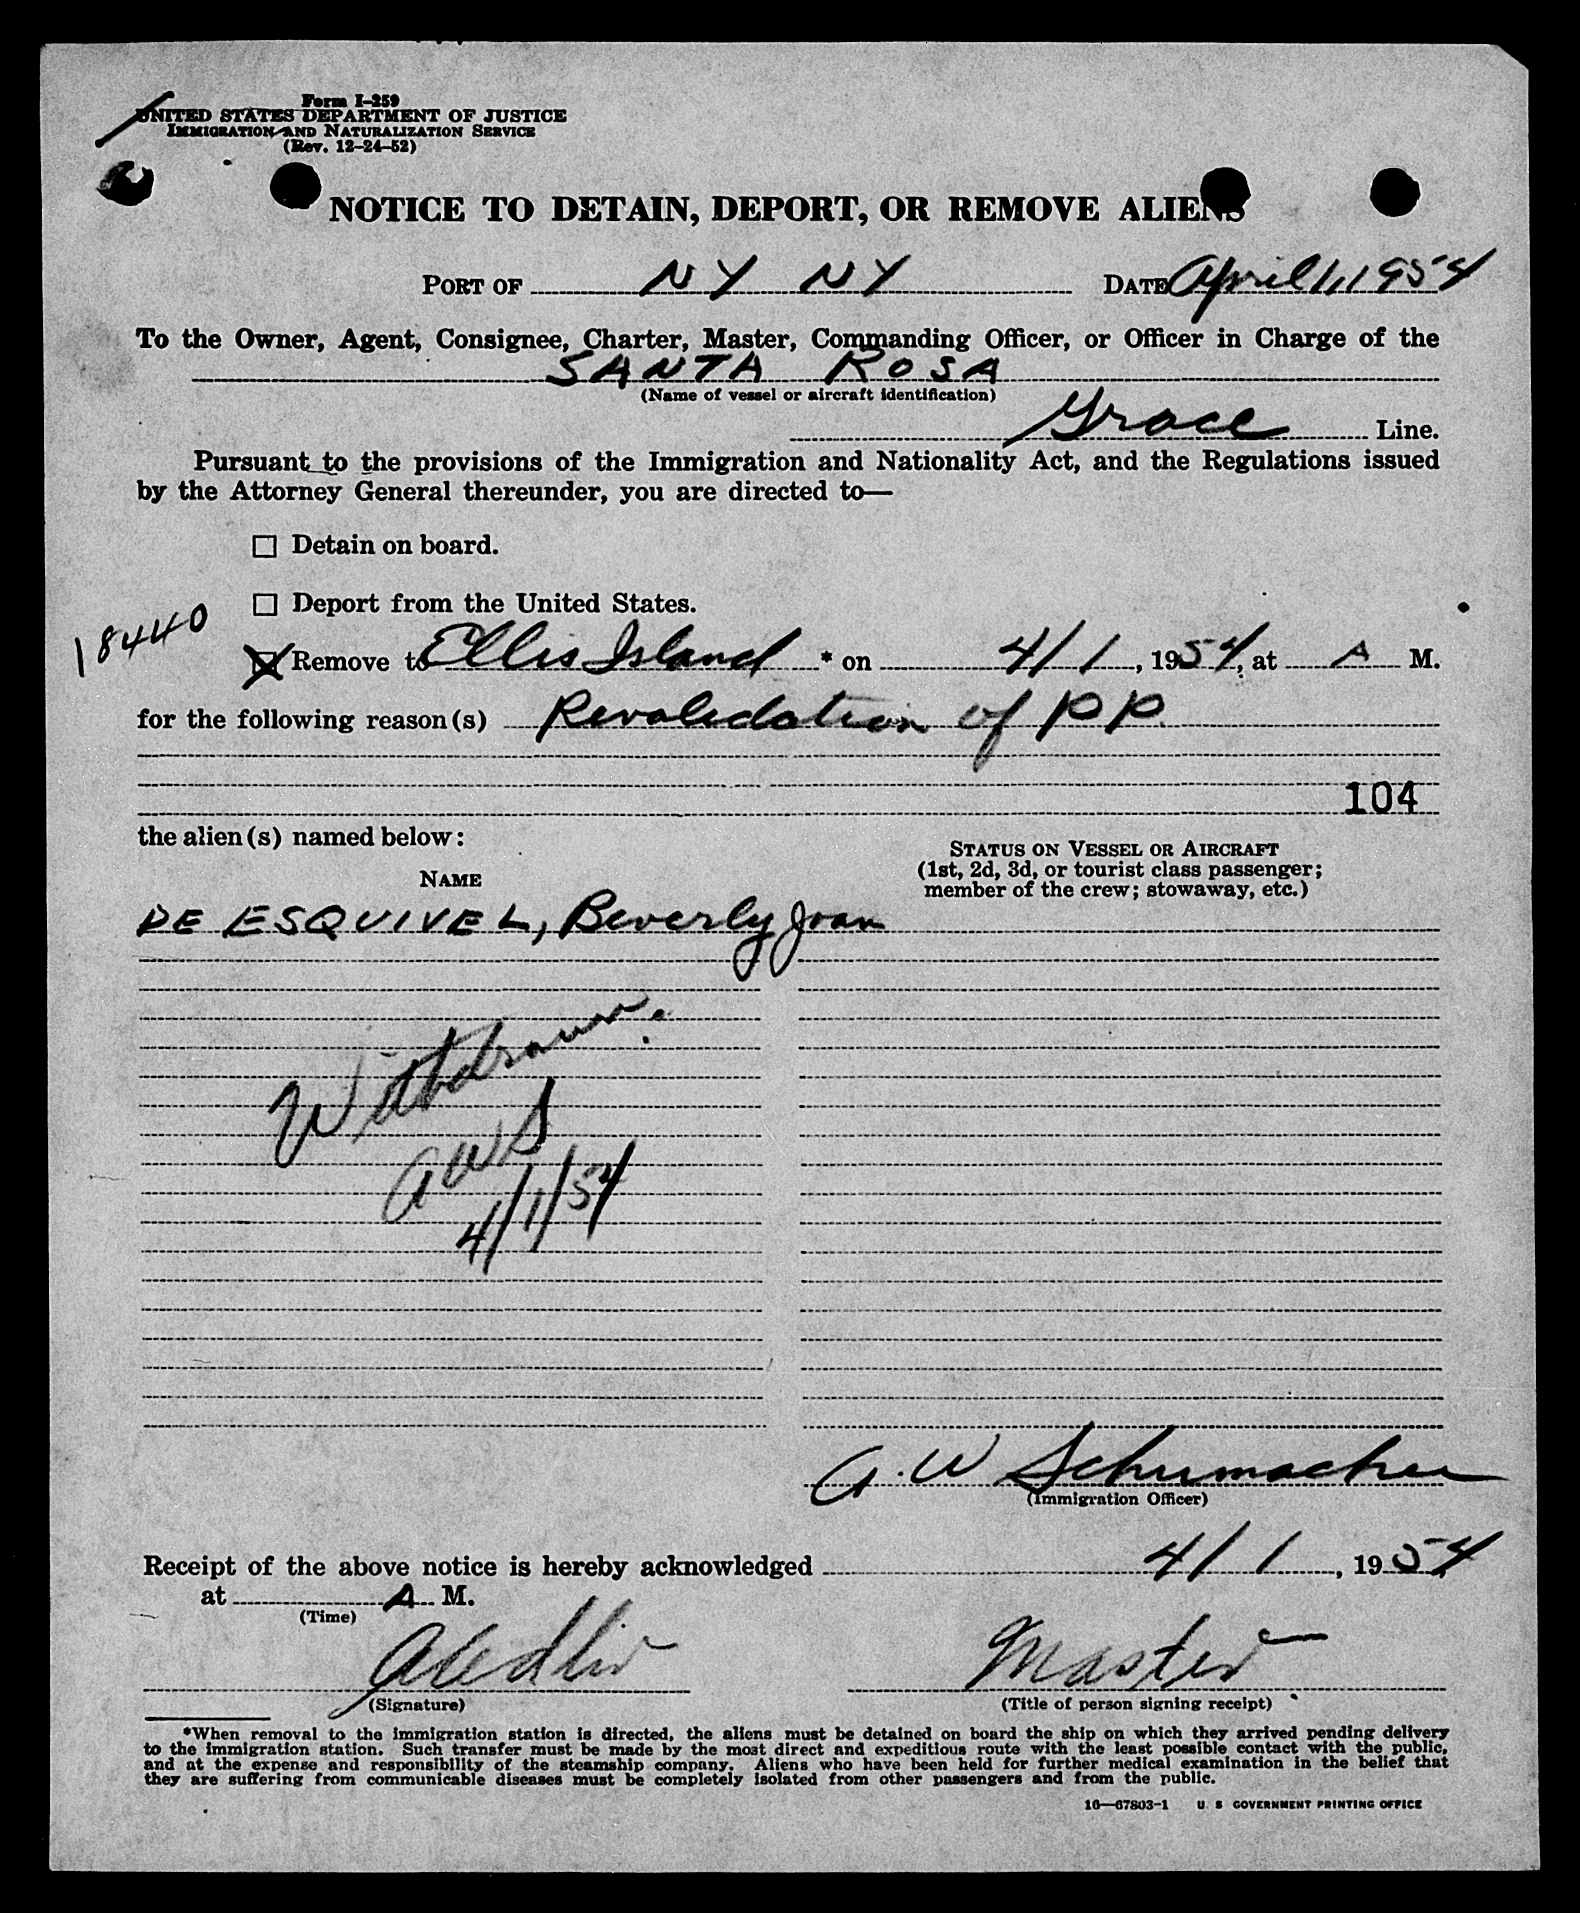 Form I-259
UNITED STATES DEPARTMENT OF JUSTICE
IMMIGRATION AND NATURALIZATION SERVICE
(Rev. 12-24-52)
NOTICE TO DETAIN, DEPORT, OR REMOVE ALIENS
PORT OF NY NY DATE April 1, 1954
To the Owner, Agent, Consignee, Charter, Master, Commanding Officer, or Officer in Charge of the
SANTA ROSA
(Name of vessel or aircraft identification)
Grace Line.
Pursuant to the provisions of the Immigration and Nationality Act, and the Regulations issued
by the Attorney General thereunder, you are directed to—
☐ Detain on board.
☐ Deport from the United States.
18440
☒ Remove to Ellis Island * on 4/1, 1954, at A M.
for the following reason(s) Revalidation of PP
104
the alien(s) named below:
NAME
STATUS ON VESSEL OR AIRCRAFT
(1st, 2d, 3d, or tourist class passenger;
member of the crew; stowaway, etc.)
DE ESQUIVEL, Beverly Joan
Withdrawn.
AWS
4/1/54
A. W Schumacher
(Immigration Officer)
Receipt of the above notice is hereby acknowledged 4/1, 1954
at A M.
(Time)
Master
(Signature)
(Title of person signing receipt)
*When removal to the immigration station is directed, the aliens must be detained on board the ship on which they arrived pending delivery
to the immigration station. Such transfer must be made by the most direct and expeditious route with the least possible contact with the public,
and at the expense and responsibility of the steamship company. Aliens who have been held for further medical examination in the belief that
they are suffering from communicable diseases must be completely isolated from other passengers and from the public.
16—67803-1 U. S GOVERNMENT PRINTING OFFICE